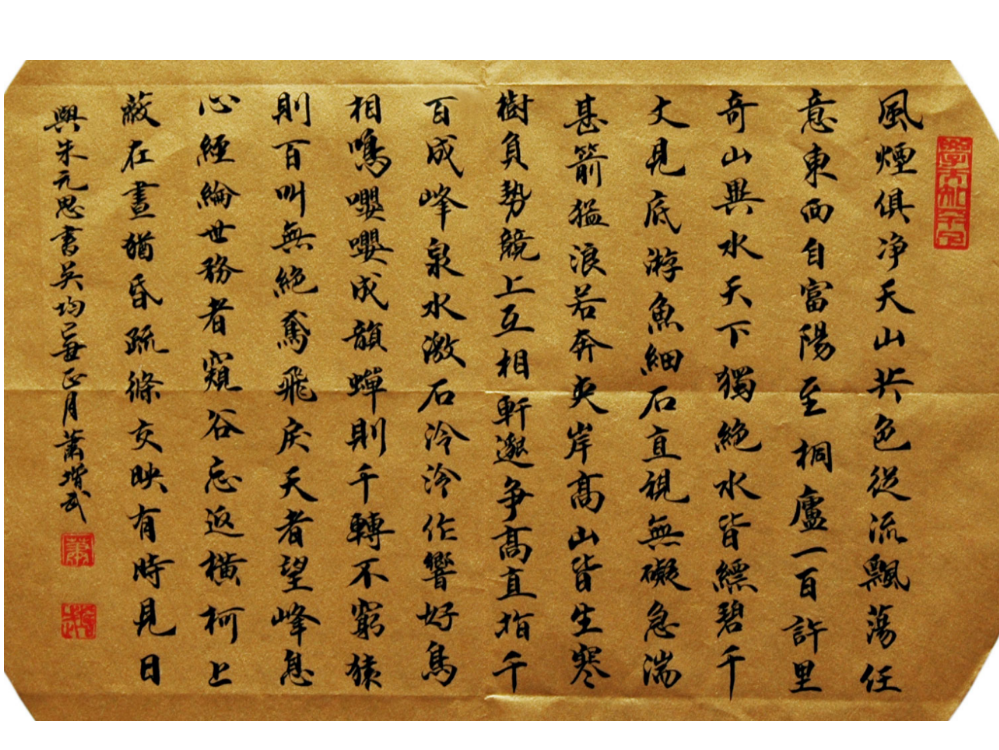 風煙俱净天山共色從流飄蕩任
意東西自富陽至桐廬一百許里
奇山異水天下獨絕水皆縹碧千
丈見底游魚細石直視無礙急湍
甚箭猛浪若奔夾岸高山皆生寒
樹負勢競上互相軒邈爭高直指千
百成峰泉水激石泠泠作響好鳥
相鳴嚶嚶成韻蟬則千轉不窮猿
則百叫無絕鳶飛戾天者望峰息
心經綸世務者窺谷忘返橫柯上
蔽在晝猶昏疏條交映有時見日
與朱元思書吳均正月蕭